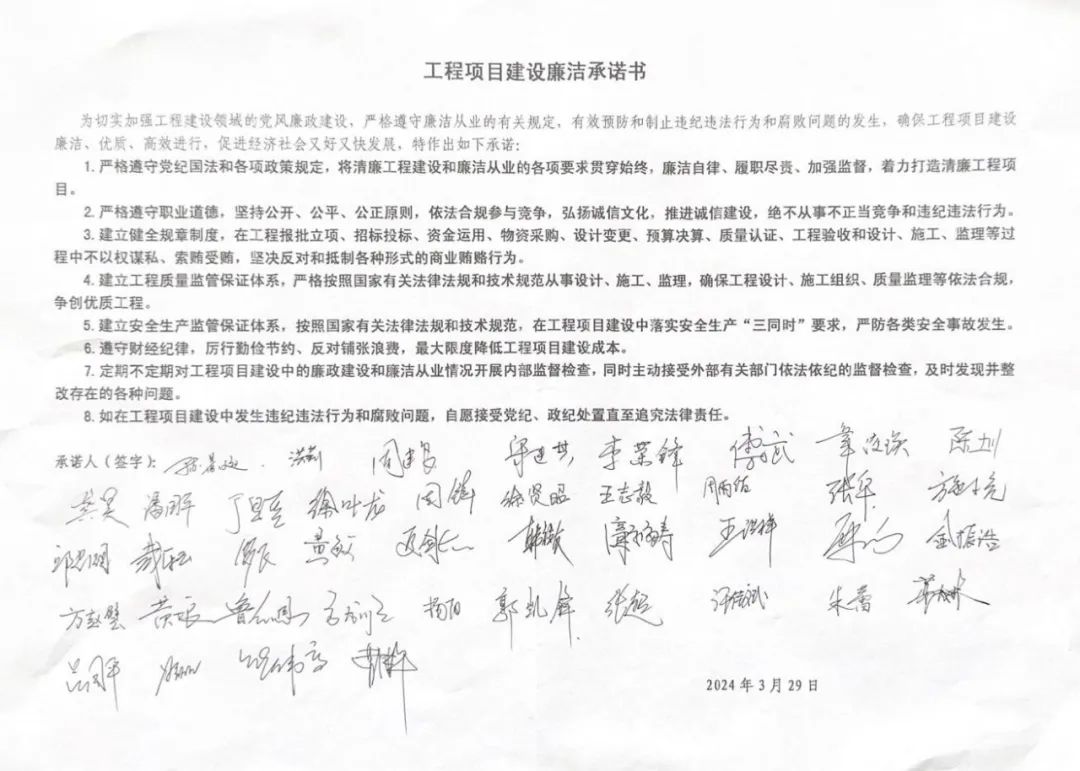 工程项目建设廉洁承诺书
为切实加强工程建设领域的党风廉政建设，严格遵守廉洁从业的有关规定，有效预防和制止违纪违法行为和腐败问题的发生，确保工程项目建设
廉洁、优质、高效进行，促进经济社会又好又快发展，特作出如下承诺：
1. 严格遵守党纪国法和各项政策规定，将清廉工程建设和廉洁从业的各项要求贯穿始终，廉洁自律、履职尽责、加强监督，着力打造清廉工程项
目。
2. 严格遵守职业道德，坚持公开、公平、公正原则，依法合规参与竞争，弘扬诚信文化，推进诚信建设，绝不从事不正当竞争和违纪违法行为。
3. 建立健全规章制度，在工程报批立项、招标投标、资金运用、物资采购、设计变更、预算决算、质量认证、工程验收和设计、施工、监理等过
程中不以权谋私、索贿受贿，坚决反对和抵制各种形式的商业贿赂行为。
4. 建立工程质量监管保证体系，严格按照国家有关法律法规和技术规范从事设计、施工、监理，确保工程设计、施工组织、质量监理等依法合规，
争创优质工程。
5. 建立安全生产监管保证体系，按照国家有关法律法规和技术规范，在工程项目建设中落实安全生产“三同时”要求，严防各类安全事故发生。
6. 遵守财经纪律，厉行勤俭节约、反对铺张浪费，最大限度降低工程项目建设成本。
7. 定期不定期对工程项目建设中的廉政建设和廉洁从业情况开展内部监督检查，同时主动接受外部有关部门依法依纪的监督检查，及时发现并整
改存在的各种问题。
8. 如在工程项目建设中发生违纪违法行为和腐败问题，自愿接受党纪、政纪处置直至追究法律责任。
承诺人（签字）： 李荣锋
徐叶龙 徐贤昭 王志毅
王洪祥 金振浩
杨阳 郭凯锋 张超 朱蕾
2024 年 3 月 29 日